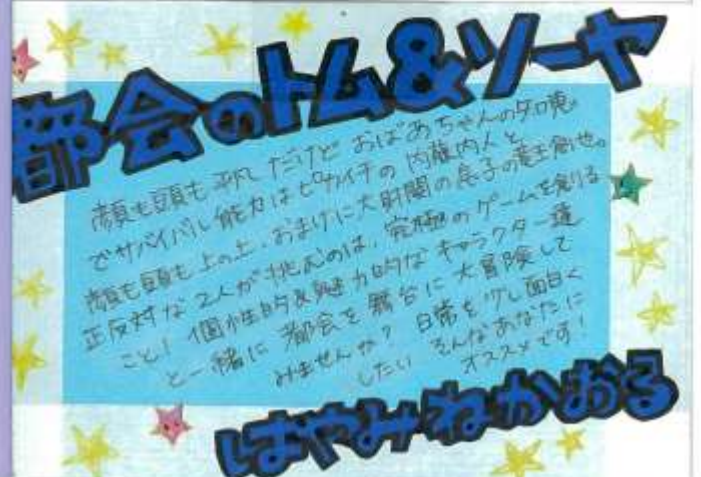 都会のトム&ソーヤ
顔も頭も平凡だけど おばあちゃんの知恵
でサバイバル能力はピカイチの 内藤内人と
顔も頭も上の上、おまけに大財閥の息子の竜王創也。
正反対な2人が挑むのは、究極のゲームを創る
こと! 個性的&魅力的なキャラクター達
と一緒に 都会を舞台に大冒険して
みませんか? 日常を少し面白く
したい そんなあなたに
オススメです!
はやみねかおる